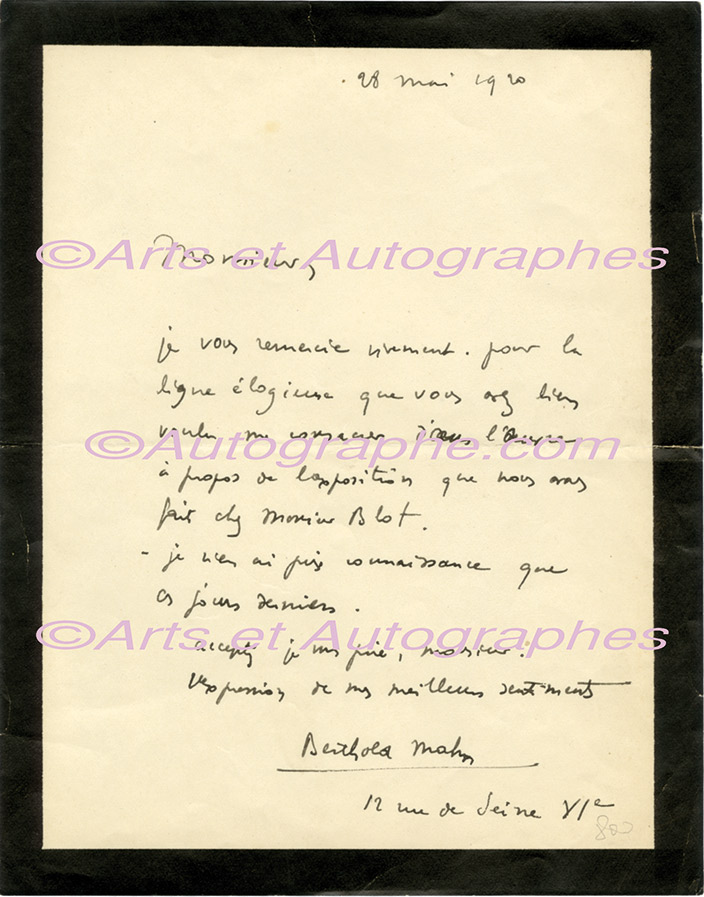 28 mai 1920
©Arts et Autographes
Monsieur,
je vous remercie vivement. pour la
ligne élogieuse que vous avez bien
voulu me consacrer dans l'
©Autographe.com
à propos de l'exposition que nous avons
fait chez Monsieur Blot.
- je n'en ai pris connaissance que
ces jours derniers.
©Arts et Autographes
acceptez je vous prie, monsieur.
l'expression de mes meilleurs sentiments
Berthold Mahn
12 rue de Seine VIe
800